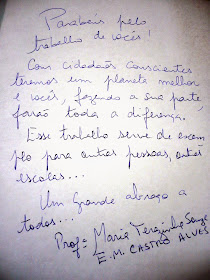 Parabens pelo
trabalho de vocês!
Com cidadãos conscientes
teremos um planeta melhor
e vocês, fazendo a sua parte
farão toda a diferença.
Esse trabalho serve de exem
plo para outras pessoas, outras
escolas...
Um Grande abraço a
todos...
Profª Maria Terezinha
E.M. CASTRO ALVES